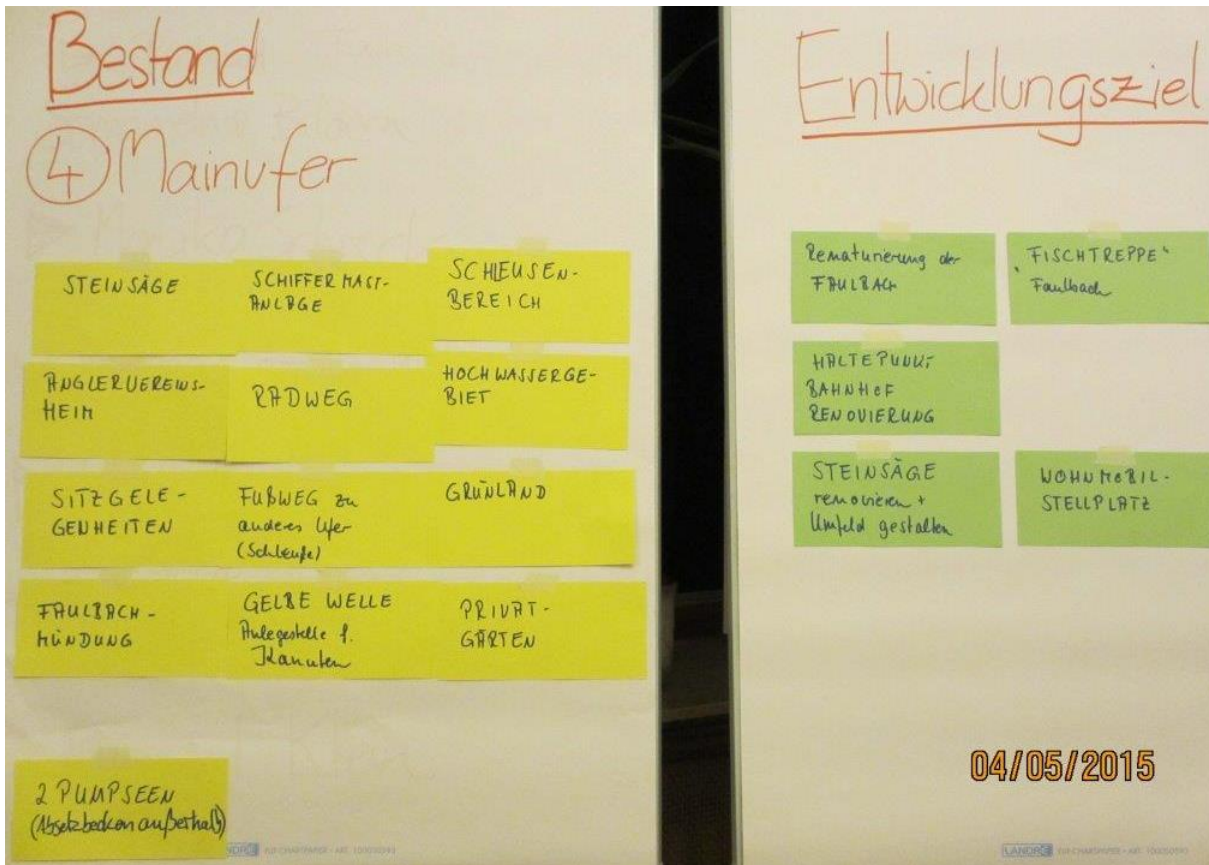 Bestand
④ Mainufer
STEINSÄGE
SCHIFFERMAST-
ANLAGE
SCHLEUSEN-
BEREICH
ANGLERVEREINS-
HEIM
RADWEG
HOCHWASSERGE-
BIET
SITZGELE-
GENHEITEN
FUßWEG zu
anderes Ufer
(Schleuße)
GRÜNLAND
FAULBACH-
MÜNDUNG
GELBE WELLE
Anlegestelle f.
Kanuten
PRIVAT-
GÄRTEN
2 PUMPSEEN
(Absetzbecken außerhalb)
Entwicklungsziel
Renaturierung der
FAULBACH
"FISCHTREPPE"
Faulbach
HALTEPUNKT
BAHNHOF
RENOVIERUNG
STEINSÄGE
renovieren +
Umfeld gestalten
WOHNMOBIL-
STELLPLATZ
04/05/2015
LANDRÉ FLIP-CHARTPAPIER - ART. 100050590
LANDRÉ FLIP-CHARTPAPIER - ART. 100050590